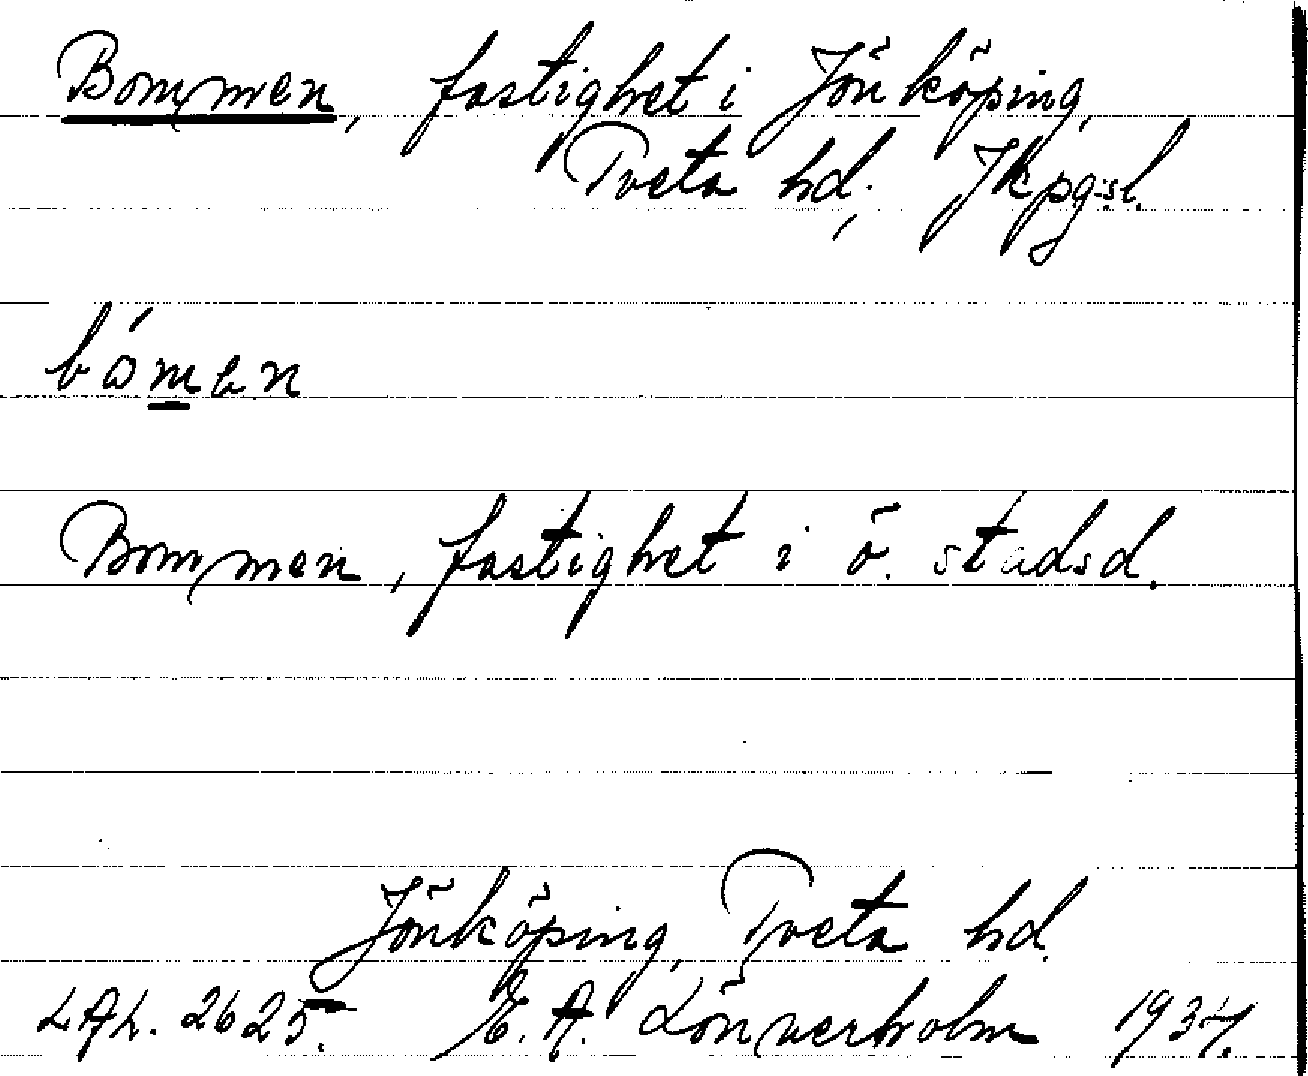 Bommen, fastighet i Jönköping,
Tveta hd, Jkpgsl.
bómen
Bommen, fastighet i ö. stadsd.
Jönköping, Tveta hd.
LAL. 2625. E. A. Lönnerholm 1934.